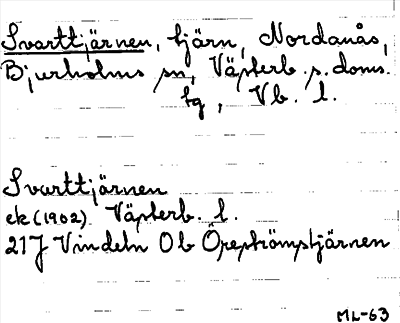 Svarttjärnen, tjärn, Nordanås,
Bjurholms sn, Västerb. s. doms.
tg, Vb. l.
Svarttjärnen
ek (1902) Västerb. l.
21J Vindeln Ob Öreströmstjärnen
ML-63